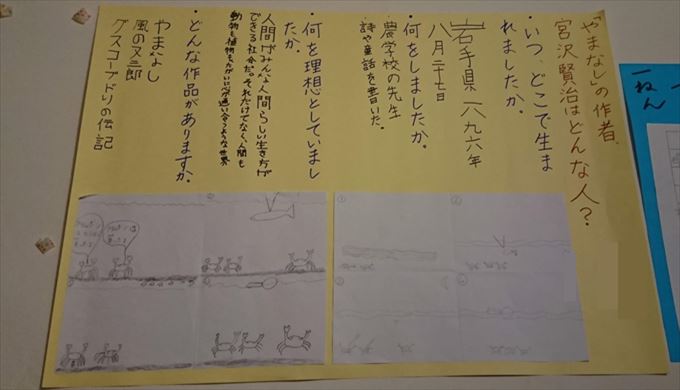 「やまなし」の作者、
宮沢賢治はどんな人？
・いつ、どこで生ま
れましたか。
岩手県 一八九六年
八月二十七日
・何をしましたか。
農学校の先生
詩や童話を書いた。
・何を理想としていまし
たか。
人間がみんな人間らしい生き方が
できる社会だ。それだけでなく、人間も
動物も植物も、たがいに心が通い合うような世界
・どんな作品がありますか。
やまなし
風の又三郎
グスコーブドリの伝記